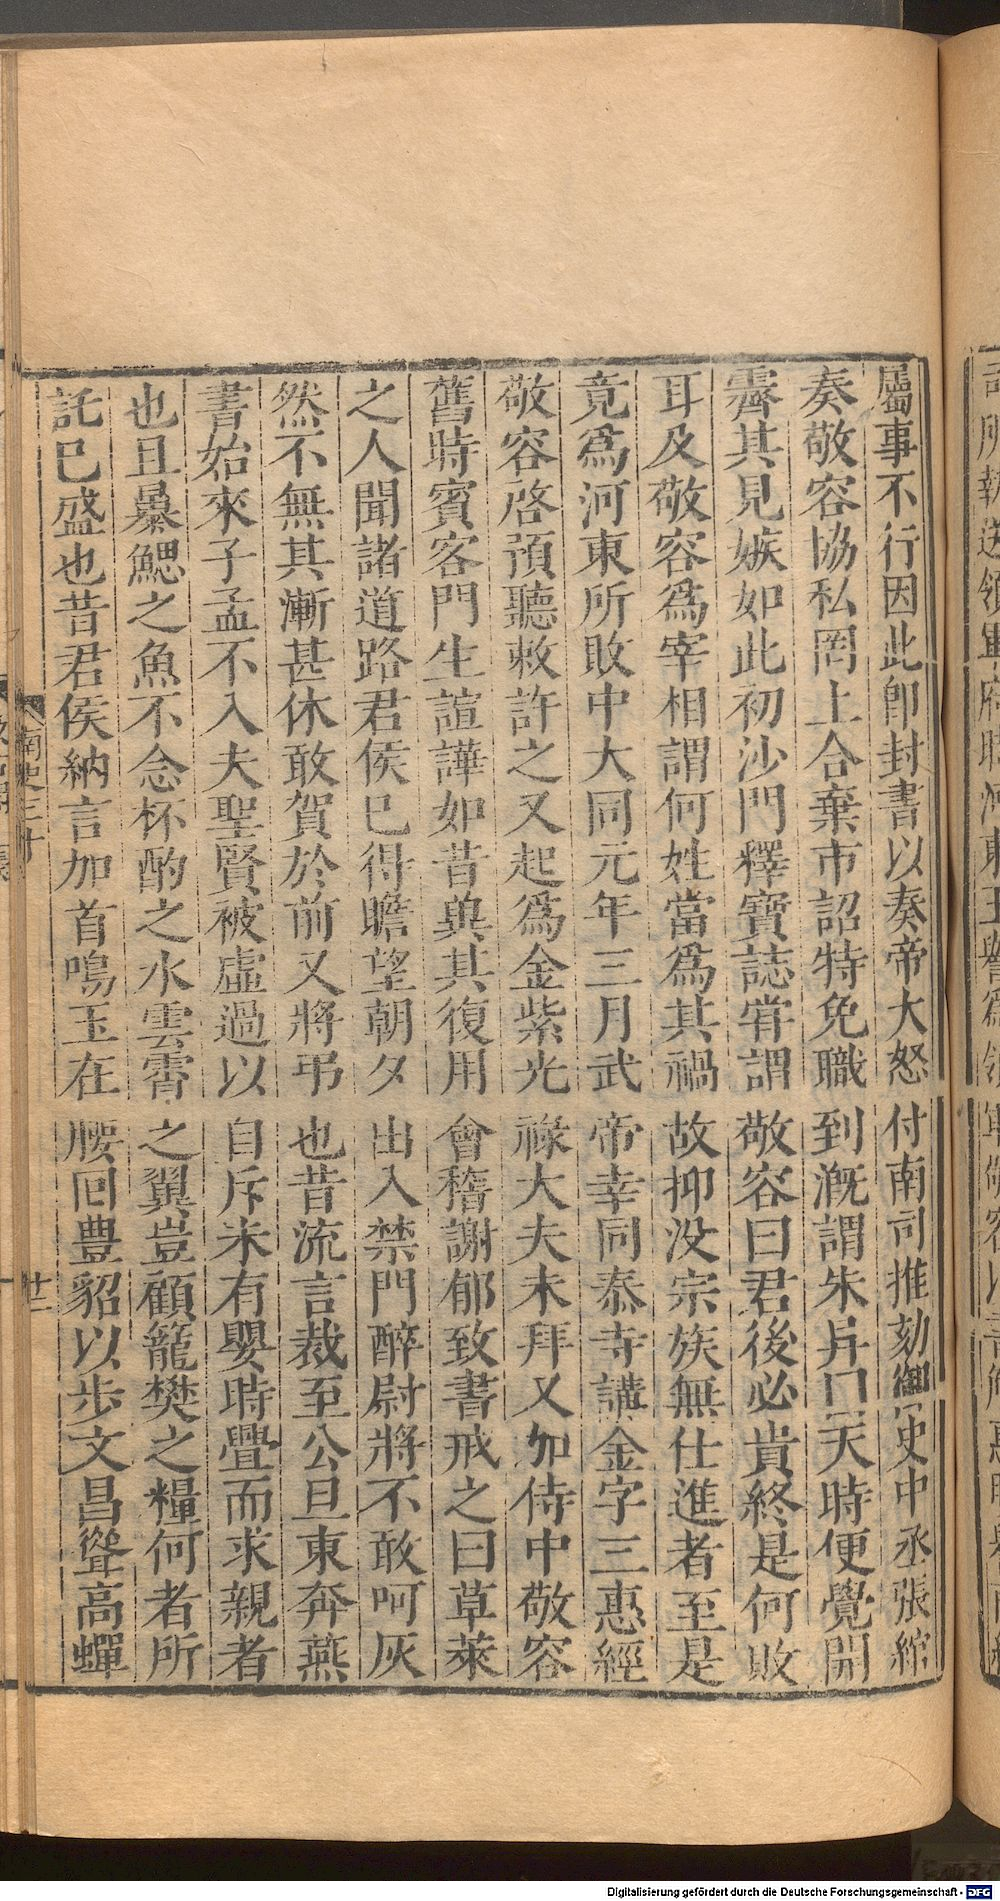 屬事不行因此卽封書以奏帝大怒付南司推劾御史中丞張綰
奏敬容協私罔上合棄市詔特免職到溉謂朱异曰天時便覺開
霽其見嫉如此初沙門釋寶誌甞謂敬容曰君後必貴終是何敗
耳及敬容爲宰相謂何姓當爲其禍故抑没宗族無仕進者至是
竟爲河東所敗中大同元年三月武帝幸同泰寺講金字三惠經
敬容啓預聽敕許之又起爲金紫光祿大夫未拜又加侍中敬容
舊時賓客門生諠譁如昔兾其復用會稽謝郁致書戒之曰草萊
之人聞諸道路君侯巳得瞻望朝夕出入禁門醉尉將不敢呵灰
然不無其漸甚休敢賀於前又將弔也昔流言裁至公旦東奔燕
書始來子孟不入夫聖賢被虛過以自斥未有嬰時釁而求親者
也且暴鰓之魚不念杯酌之水雲霄之翼豈顧籠樊之糧何者所
託巳盛也昔君侯納言加首鳴玉在腰回豊貂以步文昌聳高蟬
南史三十
廿二
Digitalisierung gefördert durch die Deutsche Forschungsgemeinschaft - DFG